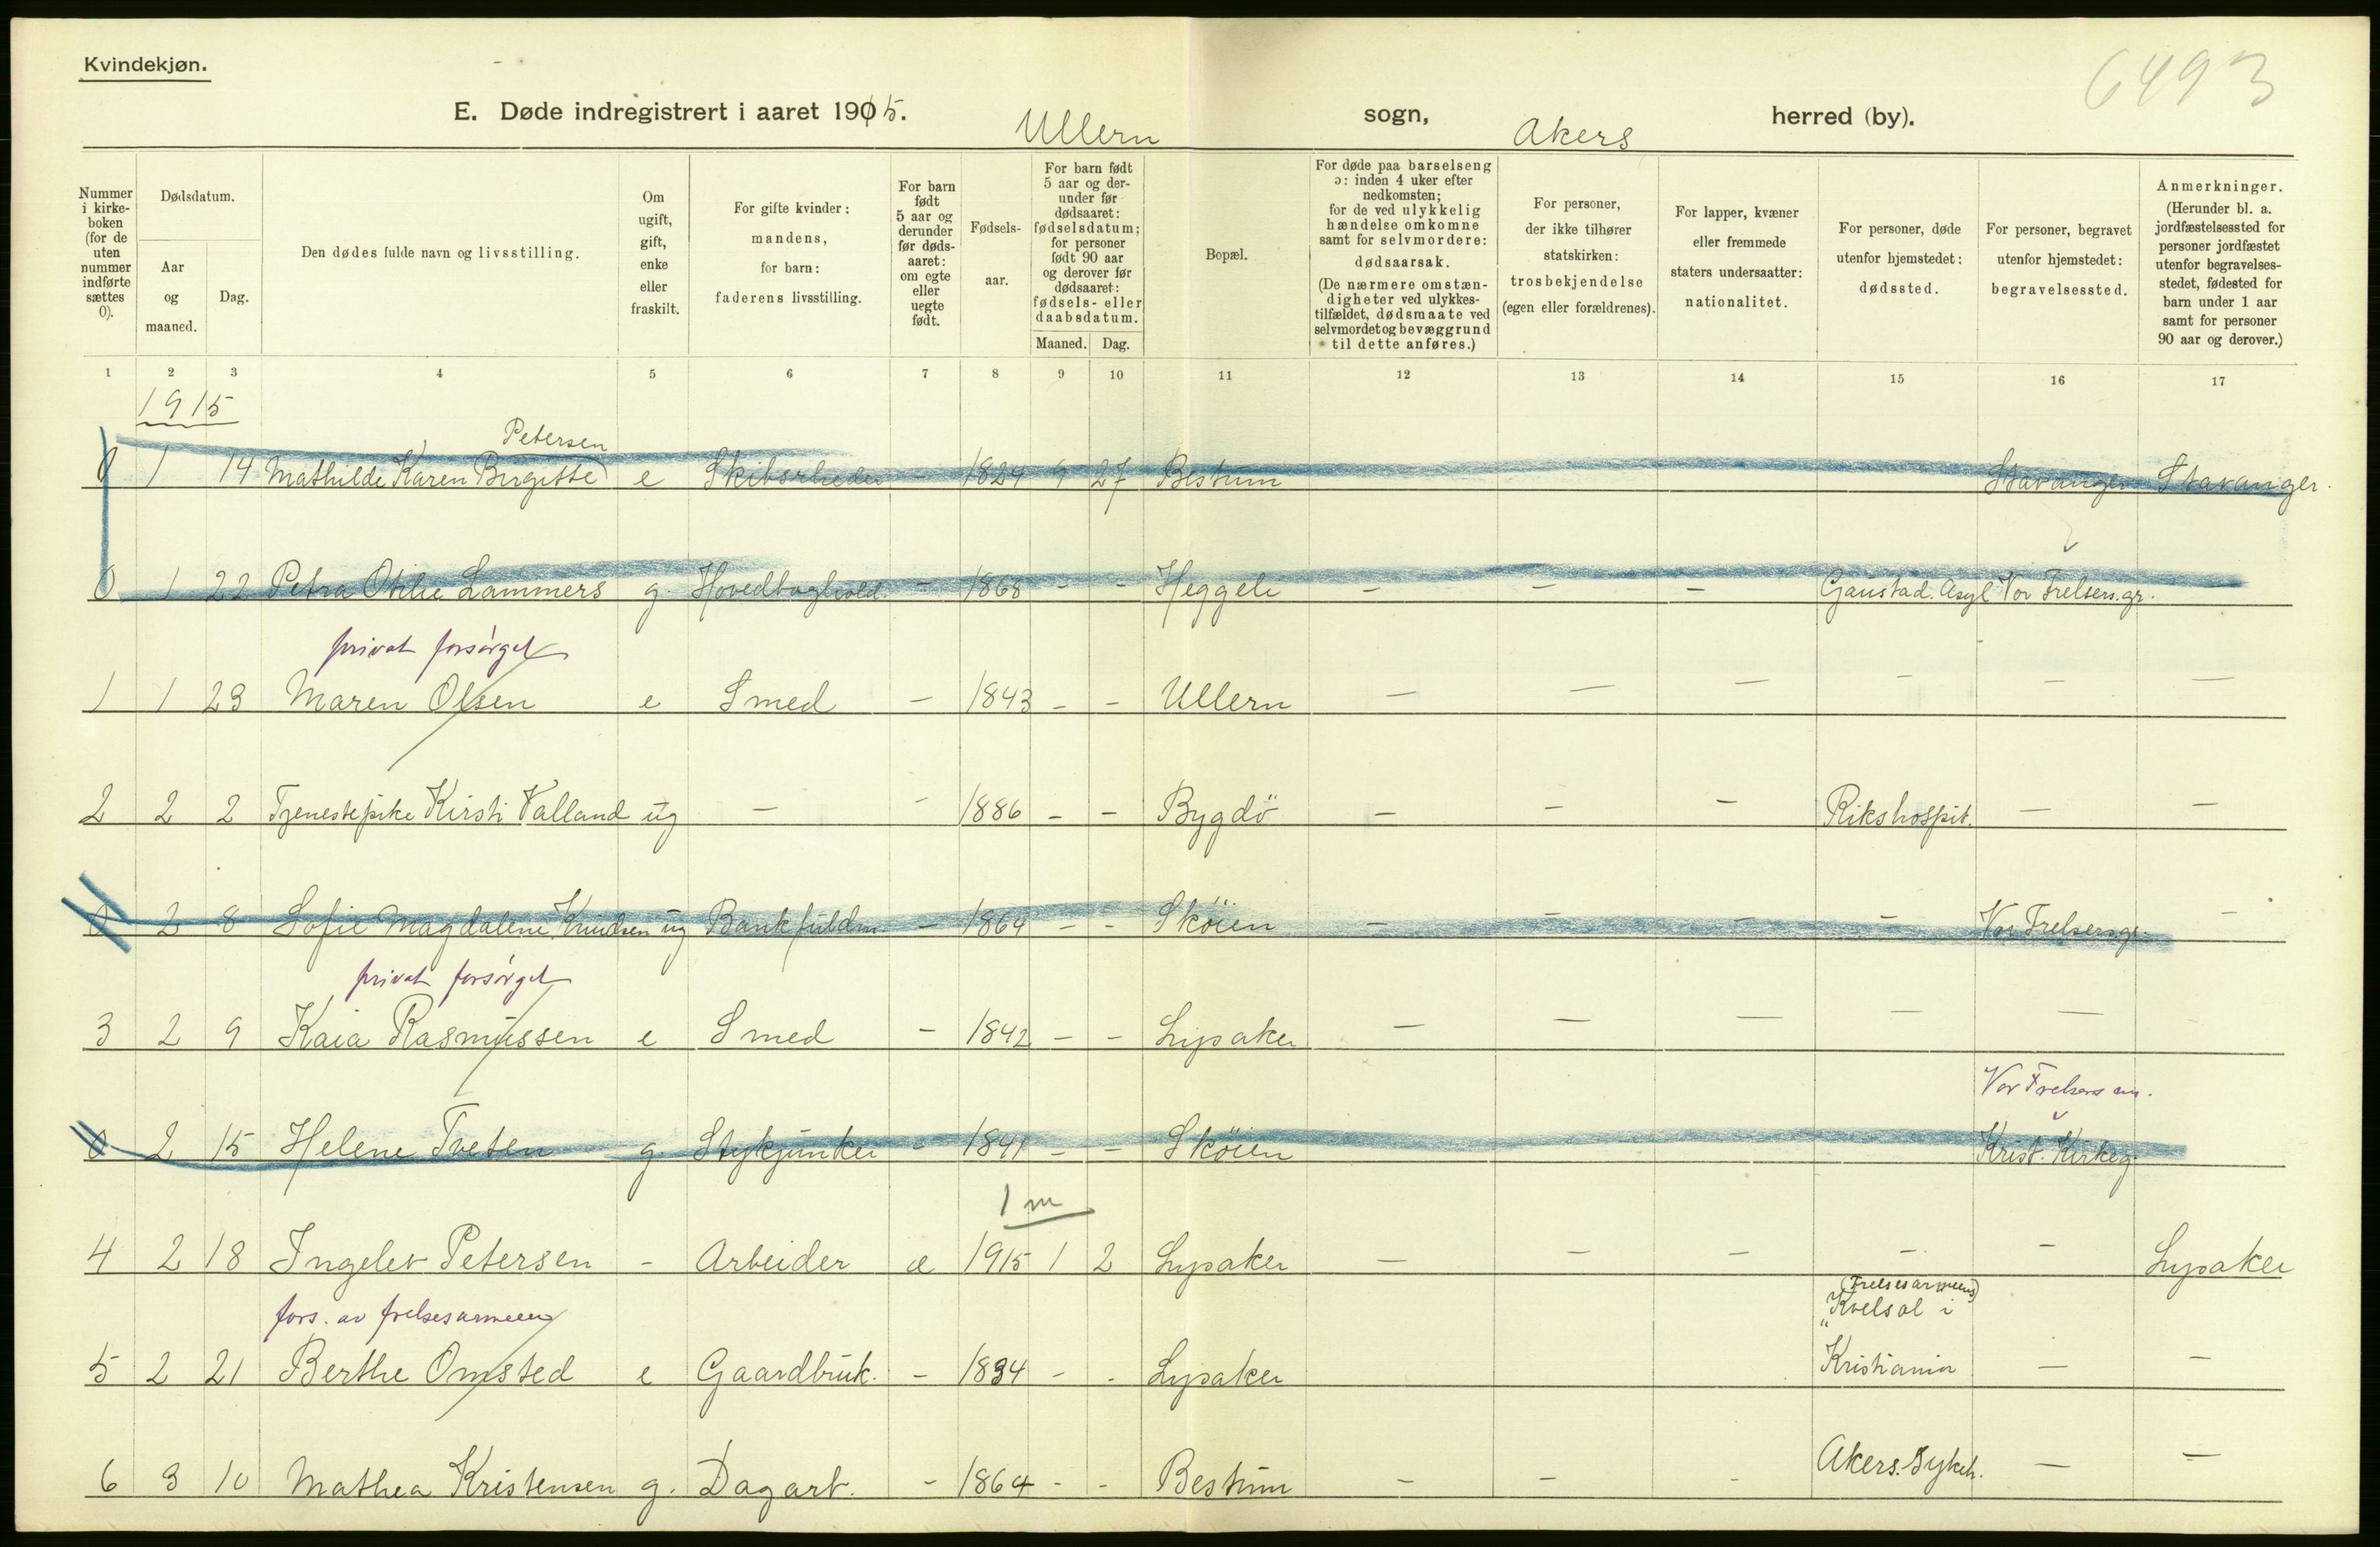 Kvindekjøn.
6493
E. Døde indregistrert i aaret 1915. Ullern sogn, Akers herred (by).
Nummer i kirkeboken (for de uten nummer indførte sættes 0).
Dødsdatum.
Aar og maaned.
Dag.
Den dødes fulde navn og livsstilling.
Om ugift, gift, enke eller fraskilt.
For gifte kvinder: mandens, for barn: faderens livsstilling.
For barn født 5 aar og derunder før dødsaaret: om egte eller uegte født.
Fødselsaar.
For barn født 5 aar og derunder før dødsaaret: fødselsdatum; for personer født 90 aar og derover før dødsaaret: fødsels- eller daabsdatum.
Maaned. Dag.
Bopæl.
For døde paa barselseng ɔ: inden 4 uker efter nedkomsten; for de ved ulykkelig hændelse omkomne samt for selvmordere: dødsaarsak. (De nærmere omstændigheter ved ulykkestilfældet, dødsmaate ved selvmordet og bevæggrund til dette anføres.)
For personer, der ikke tilhører statskirken: trosbekjendelse (egen eller forældrenes).
For lapper, kvæner eller fremmede staters undersaatter: nationalitet.
For personer, døde utenfor hjemstedet: dødssted.
For personer, begravet utenfor hjemstedet: begravelsessted.
Anmerkninger. (Herunder bl. a. jordfæstelsessted for personer jordfæstet utenfor begravelsesstedet, fødested for barn under 1 aar samt for personer 90 aar og derover.)
1 2 3 4 5 6 7 8 9 10 11 12 13 14 15 16 17
1915
Petersen
0 1 14 Mathilde Karen Birgitte e Skibsrheder - 1824 9 27 Bestum Stavanger Stavanger.
0 1 22 Petra Otilie Lammers g. Hovedboghold. - 1868 - - Heggeli - - - Gaustad. Asyl Vor Frelsers.gr.
privat forsørget
1 1 23 Maren Olsen e Smed - 1843 - - Ullern - - - - - -
2 2 2 Tjenestepike Kirsti Valland ug - - 1886 - - Bygdö - - - Rikshospit. - -
0 2 8 Sofie Magdalene Knudsen ug Bankfuldm. - 1864 - - Sköien - - - - Vor Frelsers.gr. -
privat forsørget
3 2 9 Kaia Rasmussen e Smed - 1842 - - Lysaker - - - - -
Vor Frelsers
0 2 15 Helene Tveten g. Stykjunker - 1841 - - Sköien Krist. Kirkeg.
1 m
4 2 18 Ingelev Petersen - Arbeider æ 1915 1 2 Lysaker - - - - - Lysaker
fors. av frelsesarmeen
(Frelsesarmeens)
"Kvelsol i
5 2 21 Berthe Omsted e Gaardbruk. - 1834 - - Lysaker Kristiania - -
6 3 10 Mathea Kristensen g. Dagarb. - 1864 - - Bestum - - - Akers. Sykeh. - -